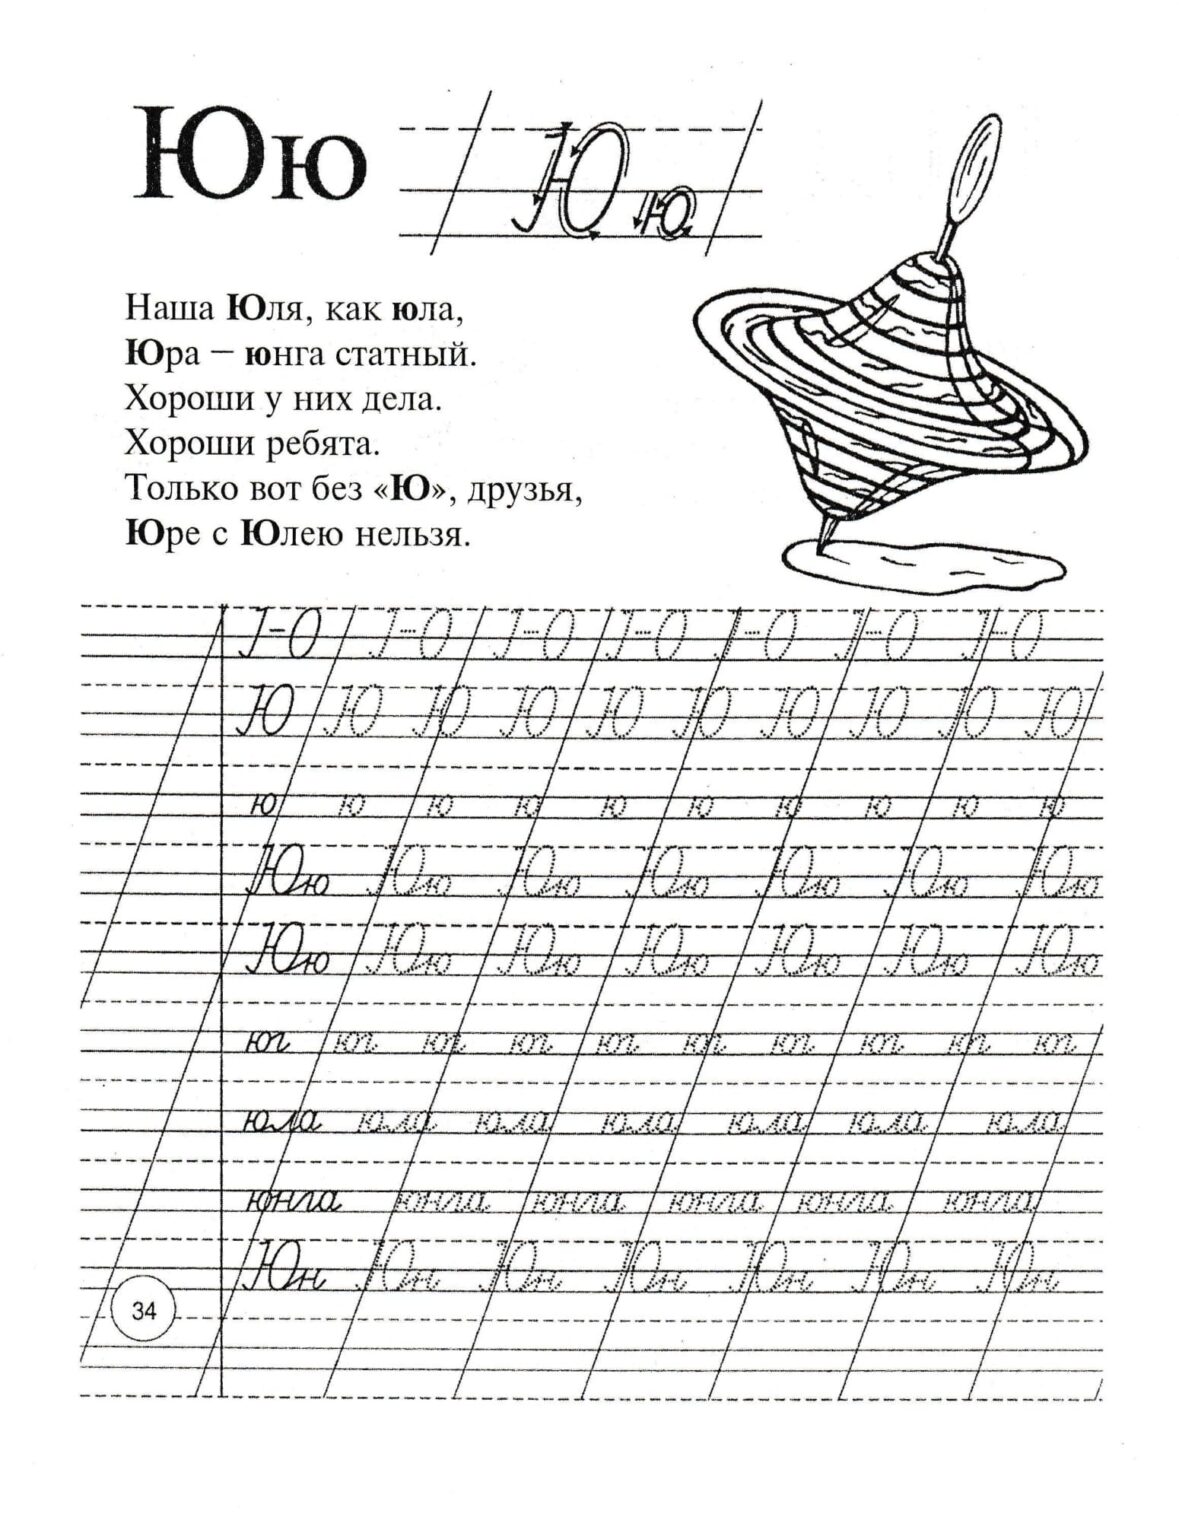 Юю Ю ю
Наша Юля, как юла,
Юра – юнга статный.
Хороши у них дела.
Хороши ребята.
Только вот без «Ю», друзья,
Юре с Юлею нельзя.
I-О I-О I-О I-О I-О I-О I-О
Ю Ю Ю Ю Ю Ю Ю Ю Ю Ю
ю ю ю ю ю ю ю ю ю ю
Юю Юю Юю Юю Юю Юю Юю
Юю Юю Юю Юю Юю Юю Юю
юг юг юг юг юг юг юг юг юг юг
юла юла юла юла юла юла юла
юнга юнга юнга юнга юнга юнга
Юн Юн Юн Юн Юн Юн Юн
34